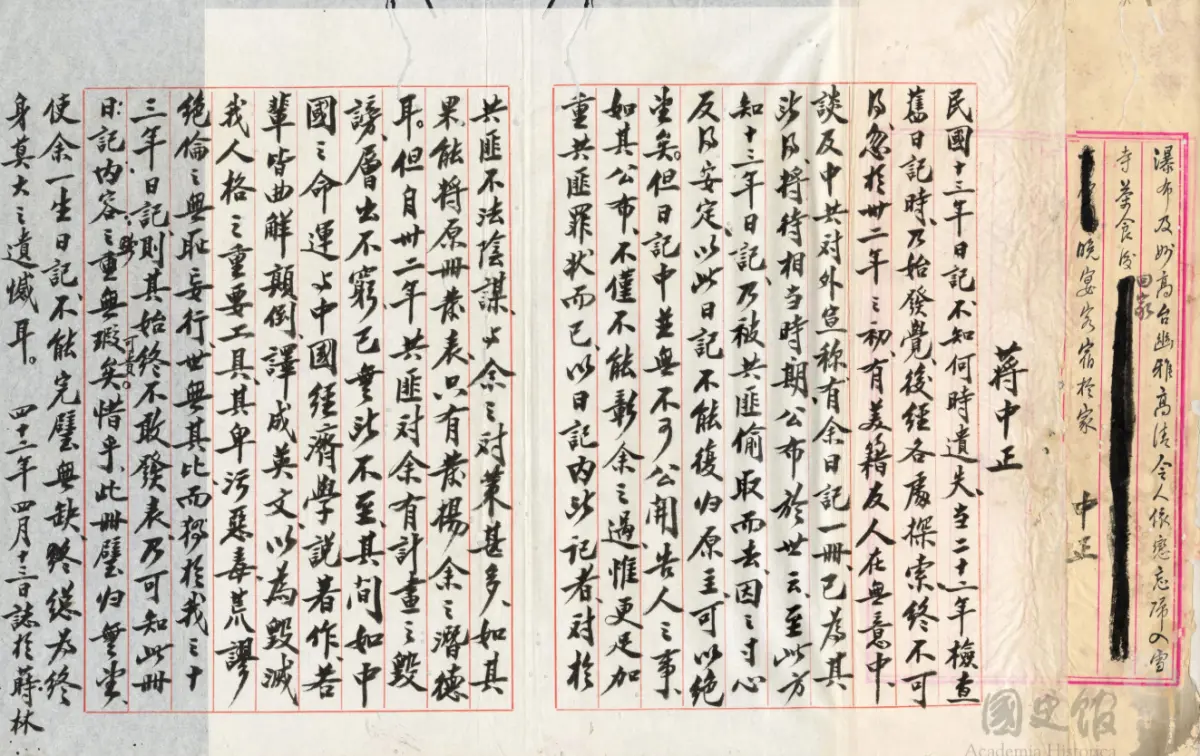 瀑布及妙高台幽雅高潔令人依戀忘歸入雪
寺茶食後回家
晚宴客宿於家 中正
蔣中正
民國十三年日記不知何時遺失、当二十二年檢查
舊日記時、乃始發覺、後經各處探索終不可
得、忽於卅二年之初、有美籍友人在無意中、
談及中共对外宣称、有余日記一冊、已為其
所得、将待相当時期公布於世云、至此方
知十三年日記、乃被共匪偷取而去、因之寸心
反得安定、以此日記不能復归原主、可以绝
望矣。但日記中並無不可公開告人之事、
如其公布、不僅不能彰余之過、惟更足加
重共匪罪状而已、以日記内所記者、对於
共匪不法陰謀、与余之对策甚多、如其
果能将原冊發表、只有發揚余之潛德
耳。但自卅二年共匪对余有計畫之毀
謗、層出不窮、已無所不至、其間如中
國之命運与中國經濟學説著作、若
輩皆曲解顛倒、譯成英文、以為毀滅
我人格之重要工具、其卑污惡毒、荒謬
絕倫之無恥妄行、世無其比、而獨於我之十
三年日記、則其始終不敢發表、乃可知此冊
日記内容之重無瑕可貴。矣惜乎、此冊璧归無望
使余一生日記、不能完璧無缺、終為終
身莫大之遺憾耳。 四十二年四月十三日誌於蒔林
國史館
Academia Historica